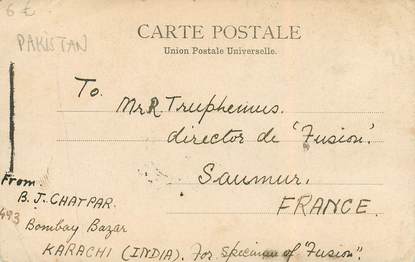 6 €
PAKISTAN
CARTE POSTALE
Union Postale Universelle.
To.
Mr R. Truphemus.
director de 'Fusion'.
Saumur.
FRANCE.
From
B. J. CHATPAR.
493
Bombay Bazar
KARACHI (INDIA). For Specimen of "Fusion".